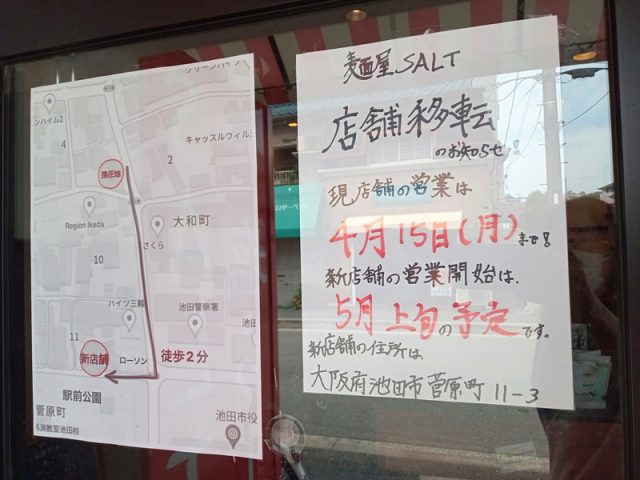 グリーンハイツ
ンハイム2
4
キャッスルヴィル
現在地
2
Region Ikeda
大和町
さくら
10
ハイツ三輪
池田警察署
11
新店舗
ローソン
徒歩2分
駅前公園
菅原町
池田市役
教室池田校
麺屋SALT
店舗移転
のお知らせ
現店舗の営業は
4月15日(月)まで!
新店舗の営業開始は、
5月上旬の予定です。
新店舗の住所は
大阪府池田市菅原町11-3